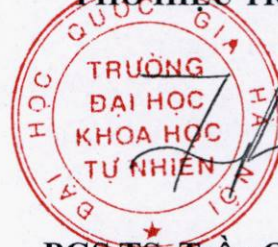 ĐẠI HỌC QUỐC GIA HÀ NỘI
TRƯỜNG
ĐẠI HỌC
KHOA HỌC
TỰ NHIÊN
PGS.TS.